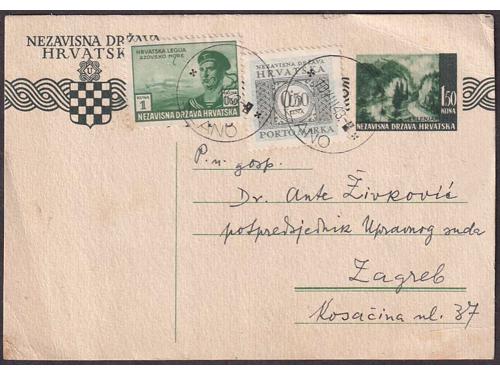 NEZAVISNA DRŽAVA
HRVATSKA
U
HRVATSKA LEGIJA
AZOVSKO MORE
KUNA
1
NEZAVISNA DRŽAVA HRVATSKA
NEZAVISNA DRŽAVA
HRVATSKA
0.50
KUNA
PORTO MARKA
150
KUNA
NEZAVISNA DRŽAVA HRVATSKA
P. n. gosp.
Dr. Ante Živković
potpredsjednik Upravnog suda
Zagreb
Kosačina ul. 37